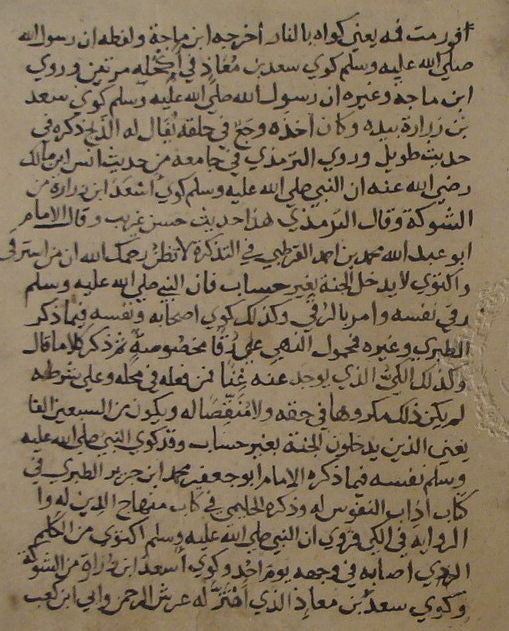 افورمت فمه يعني كواه بالنار أخرجه ابن ماجة ولفظه ان رسول الله
صلي الله عليه وسلم كوي سعد بن معاذ في أكحله مرتين وروي
ابن ماجه وغيره ان رسول الله صلي الله عليه وسلم كوي سعد
بن زرارة بيده وكان أخذه وجع في حلقه يقال له الذبح ذكره في
حديث طويل وروي الترمذي في جامعه من حديث أنس ابن مالك
رضي الله عنه ان النبي صلي الله عليه وسلم كوي أسعد ابن زرارة من
الشوكة وقال الترمذي هذا حديث حسن غريب وقال الامام
ابو عبد الله محمد بن احمد القرطبي في التذكرة لا تظن رحمك الله ان من استرقى
واكتوي لا يدخل الجنة بغير حساب فان النبي صلي الله عليه وسلم
رقى نفسه وامر بالرقي وكذلك كوي اصحابه ونفسه فيما ذكر
الطبري وغيره فمحمول النهي علي رقا مخصوصة ثم ذكر كلاما قال
وكذلك الكي الذي يوجد عنه غنا فمن فعله في محله وعلي شرطه
لم يكن ذلك مكروها في حقه ولا منقصا له ويكون من السبعين الفا
يعني الذين يدخلون الجنة بغير حساب وقد كوي النبي صلي الله عليه
وسلم نفسه فيما ذكره الامام ابو جعفر محمد ابن جرير الطبري في
كتاب آداب النفوس له وذكره الحليمي في كتاب منهاج الدين له وا
الرواية في الكي فروي ان النبي صلي الله عليه وسلم اكتوي من الكلم
الذي اصابه في وجهه يوم احد وكوي أسعد ابن زرارة من الشوكة
وكوي سعد بن معاذ الذي اهتز له عرش الرحمن وابي ابن كعب